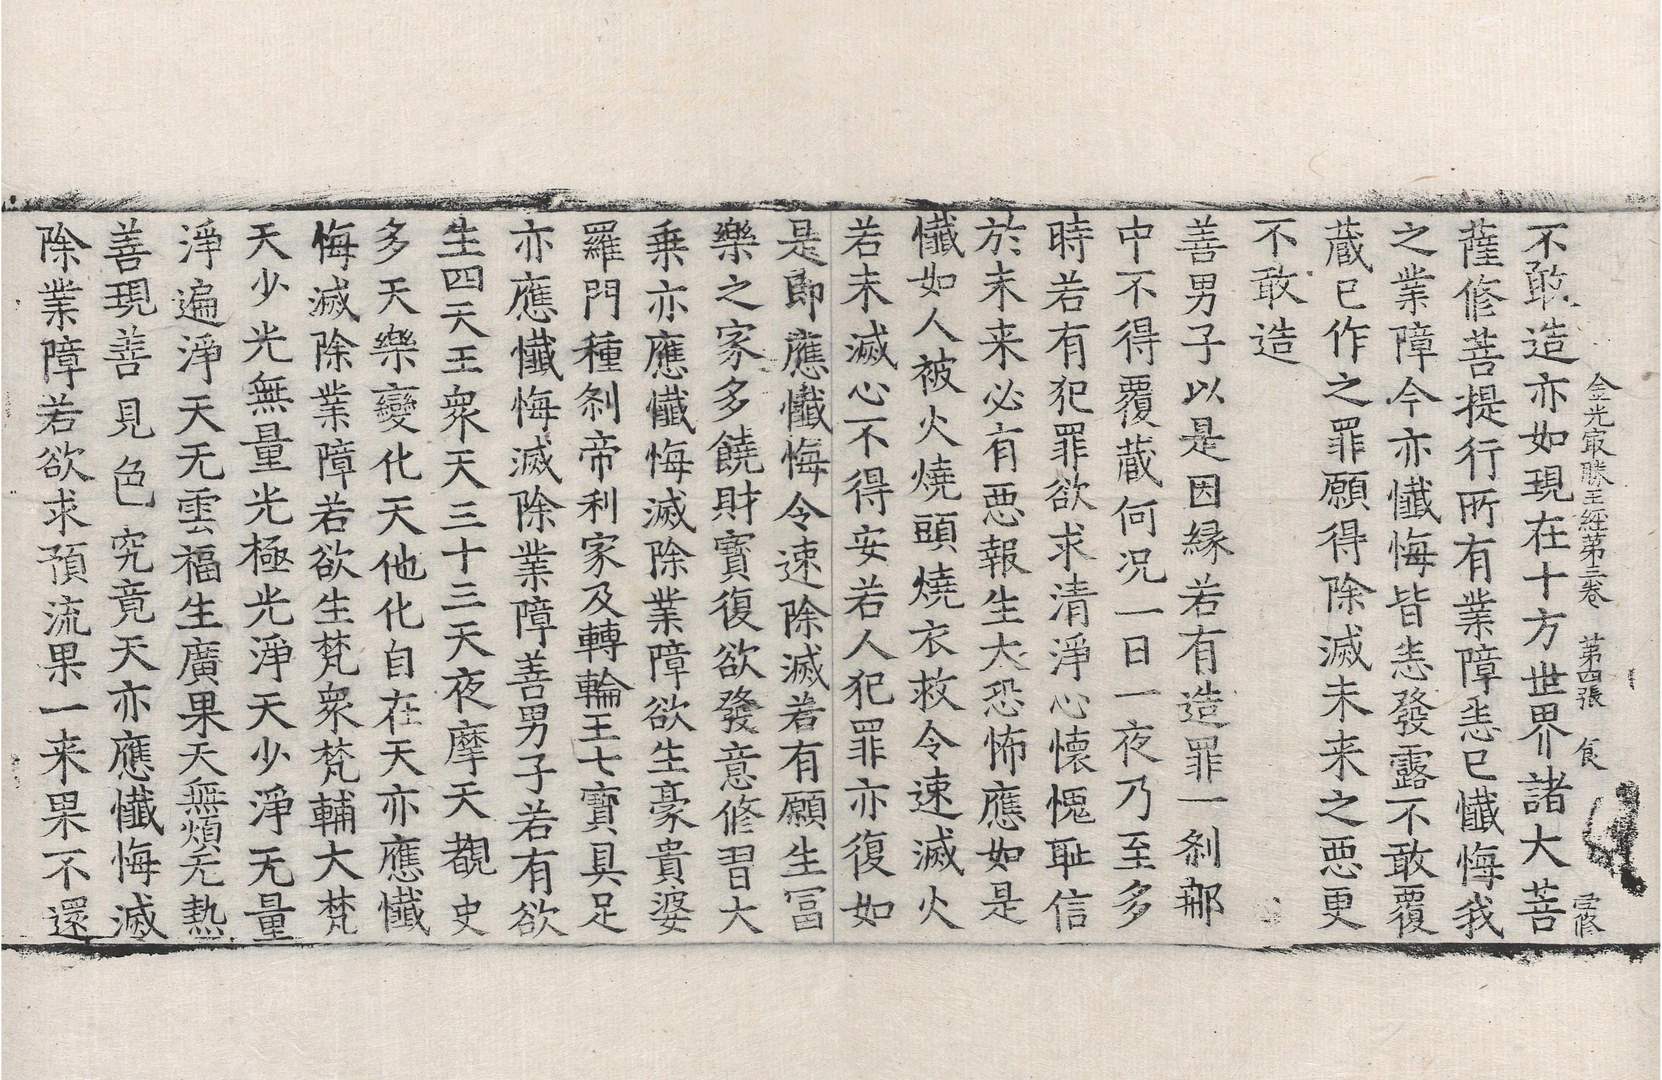 金光㝡勝王經第三卷 第四張 食
不敢造亦如現在十方世界諸大菩
薩修菩提行所有業障悉已懺悔我
之業障今亦懺悔皆悉發露不敢覆
藏已作之罪願得除滅未来之惡更
不敢造
善男子以是因緣若有造罪一刹那
中不得覆藏何况一日一夜乃至多
時若有犯罪欲求清淨心懷愧耻信
於未来必有惡報生大恐怖應如是
懺如人被火燒頭燒衣救令速滅火
若未滅心不得安若人犯罪亦復如
是即應懺悔令速除滅若有願生冨
樂之家多饒財寳復欲發意修習大
乗亦應懺悔滅除業障欲生豪貴婆
羅門種刹帝利家及轉輪王七寳具足
亦應懺悔滅除業障善男子若有欲
生四天王衆天三十三天夜摩天覩史
多天樂變化天他化自在天亦應懺
悔滅除業障若欲生梵衆梵輔大梵
天少光無量光極光淨天少淨无量
淨遍淨天无雲福生廣果天無煩无熱
善現善見色究竟天亦應懺悔滅
除業障若欲求預流果一来果不還